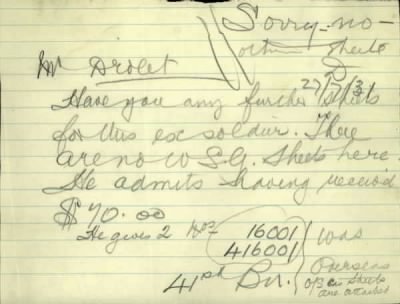 Sorry - no -
other sheets
Mr Drolet
27/7/31
Have you any further sheets
for this ex soldier. There
are no W S.G. Sheets here.
He admits having received
$70.00
He gives 2 Nos 16001
416001
41st Bn.
was
Overseas
o/s cas sheets
are attached